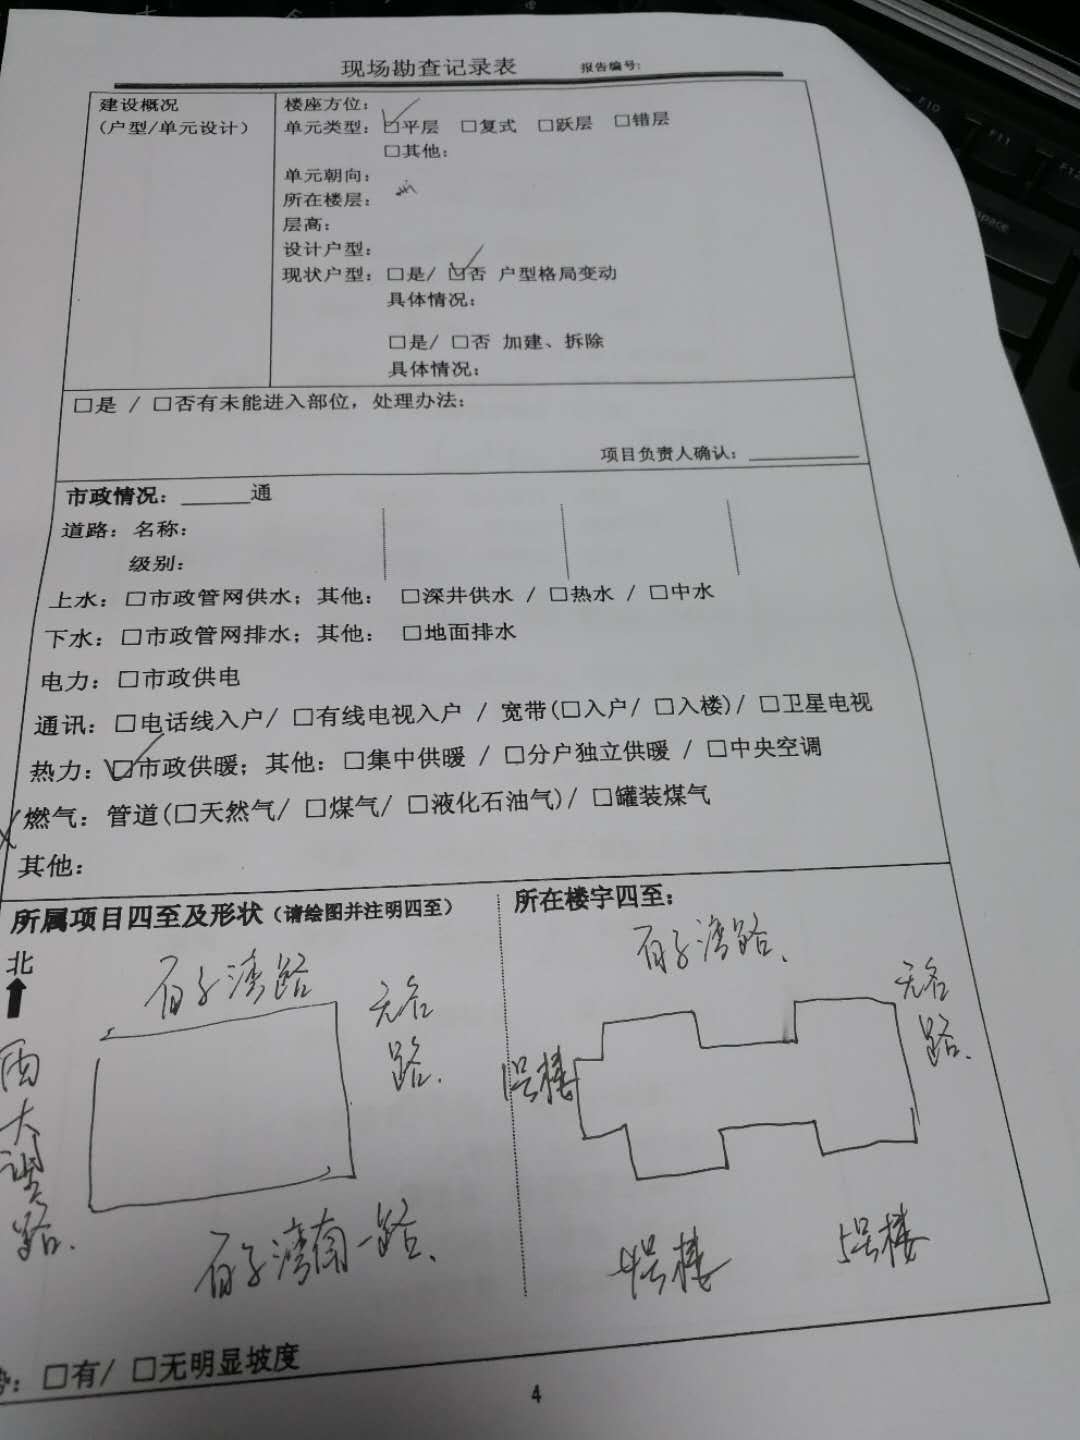 现场勘查记录表 报告编号:
建设概况
(户型/单元设计)
楼座方位:
单元类型: ☑平层 □复式 □跃层 □错层
□其他:
单元朝向:
所在楼层:
层高:
设计户型:
现状户型: □是/ ☑否 户型格局变动
具体情况:
□是/ □否 加建、拆除
具体情况:
□是 / □否有未能进入部位, 处理办法:
项目负责人确认: ________
市政情况: ______通
道路: 名称:
级别:
上水: □市政管网供水; 其他: □深井供水 / □热水 / □中水
下水: □市政管网排水; 其他: □地面排水
电力: □市政供电
通讯: □电话线入户/ □有线电视入户 / 宽带(□入户/ □入楼)/ □卫星电视
热力: ☑市政供暖; 其他: □集中供暖 / □分户独立供暖 / □中央空调
燃气: 管道(□天然气/ □煤气/ □液化石油气)/ □罐装煤气
其他:
所属项目四至及形状(请绘图并注明四至)
北
百子湾路
无名
路.
西
大望
路.
百子湾南一路.
所在楼宇四至:
百子湾路.
无名
路.
1号楼
4号楼
5号楼
势: □有/ □无明显坡度
4